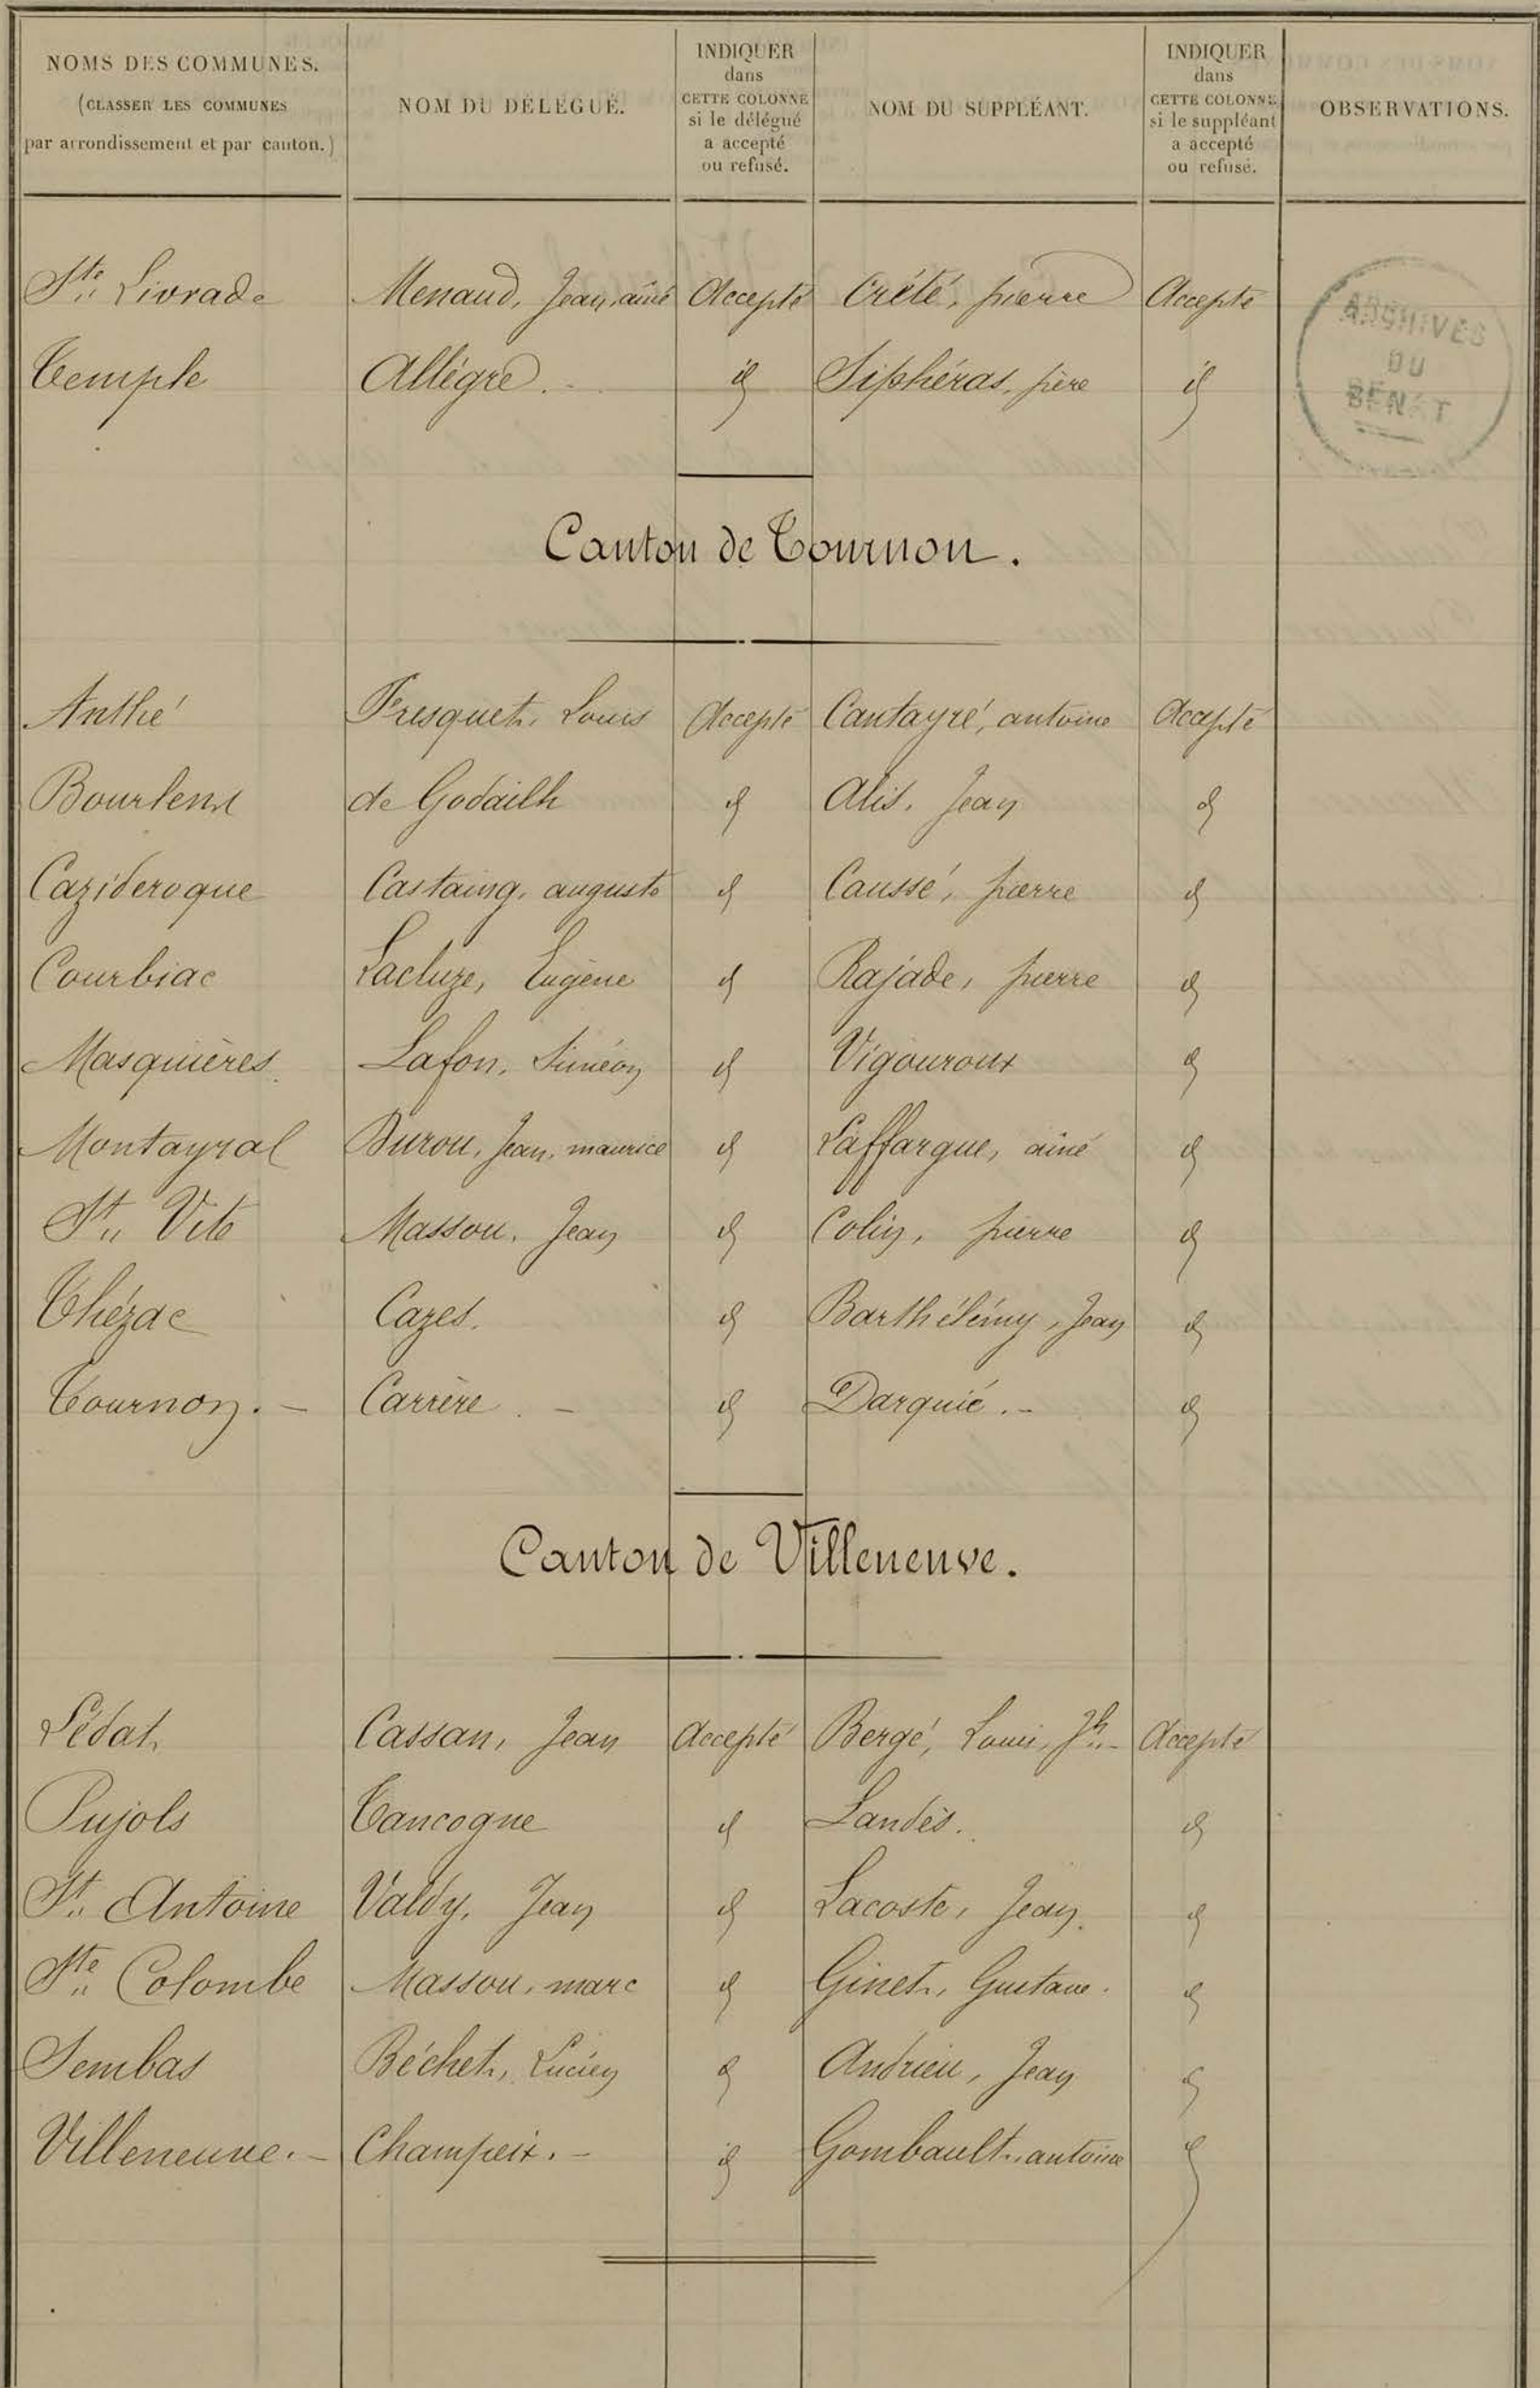 NOMS DES COMMUNES. (CLASSER LES COMMUNES par arrondissement et par canton.) | NOM DU DÉLÉGUÉ. | INDIQUER dans CETTE COLONNE si le délégué a accepté ou refusé. | NOM DU SUPPLÉANT. | INDIQUER dans CETTE COLONNE si le suppléant a accepté ou refusé. | OBSERVATIONS.
Ste Livrade Menaud, Jean, aîné Accepté Crété, pierre Accepté
Temple Allègre. id Siphéras, père id
ARCHIVES
DU
SENAT
Canton de Tournon.
Anthé Fresquet, Louis Accepté Cantayré, antoine Accepté
Bourlens de Godailh id Alis, Jean id
Cazideroque Castaing, auguste id Caussé, pierre id
Courbiac Lacluze, Eugène id Rajade, pierre id
Masquières Lafon, Siméon id Vigouroux id
Montayral Burou, Jean, maurice id Laffargue, aîné id
St Vite Massou, Jean id Colin, pierre id
Thézac Cazes. id Barthélémy, Jean id
Tournon. - Carrère. - id Darquié. - id
Canton de Villeneuve.
Lédat Cassan, Jean Accepté Bergé, Louis, Jh - Accepté
Pujols Tancogne id Landès. id
St Antoine Valdy, Jean id Lacoste, Jean. id
Ste Colombe Massou, marc id Ginet, Gustave. id
Sembas Béchet, Lucien id Andrieu, Jean id
Villeneuve. - Champeix. - id Gombault, antoine id